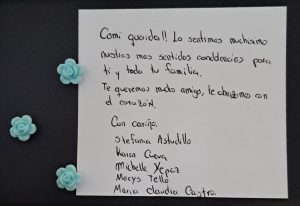 Comi querida!! Lo sentimos muchísimo
nuestras mas sentidas condolencias para
ti y toda tu familia.
Te queremos mucho amiga, te abrazamos con
el corazón.
Con cariño.
Stefania Astudillo
Karen Cueva
Michelle Yepez
Marys Tello
Maria Claudia Castro.